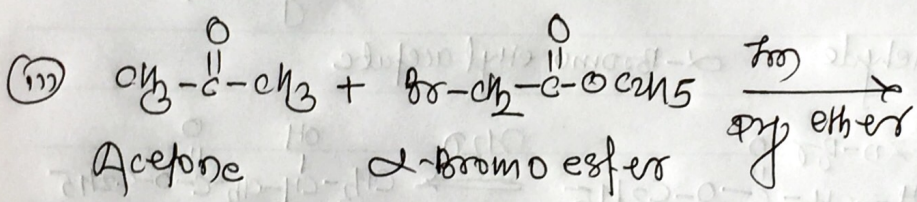 O O
(iii) CH3-C-CH3 + Br-CH2-C-O C2H5
dry ether
Acetone α-Bromo ester